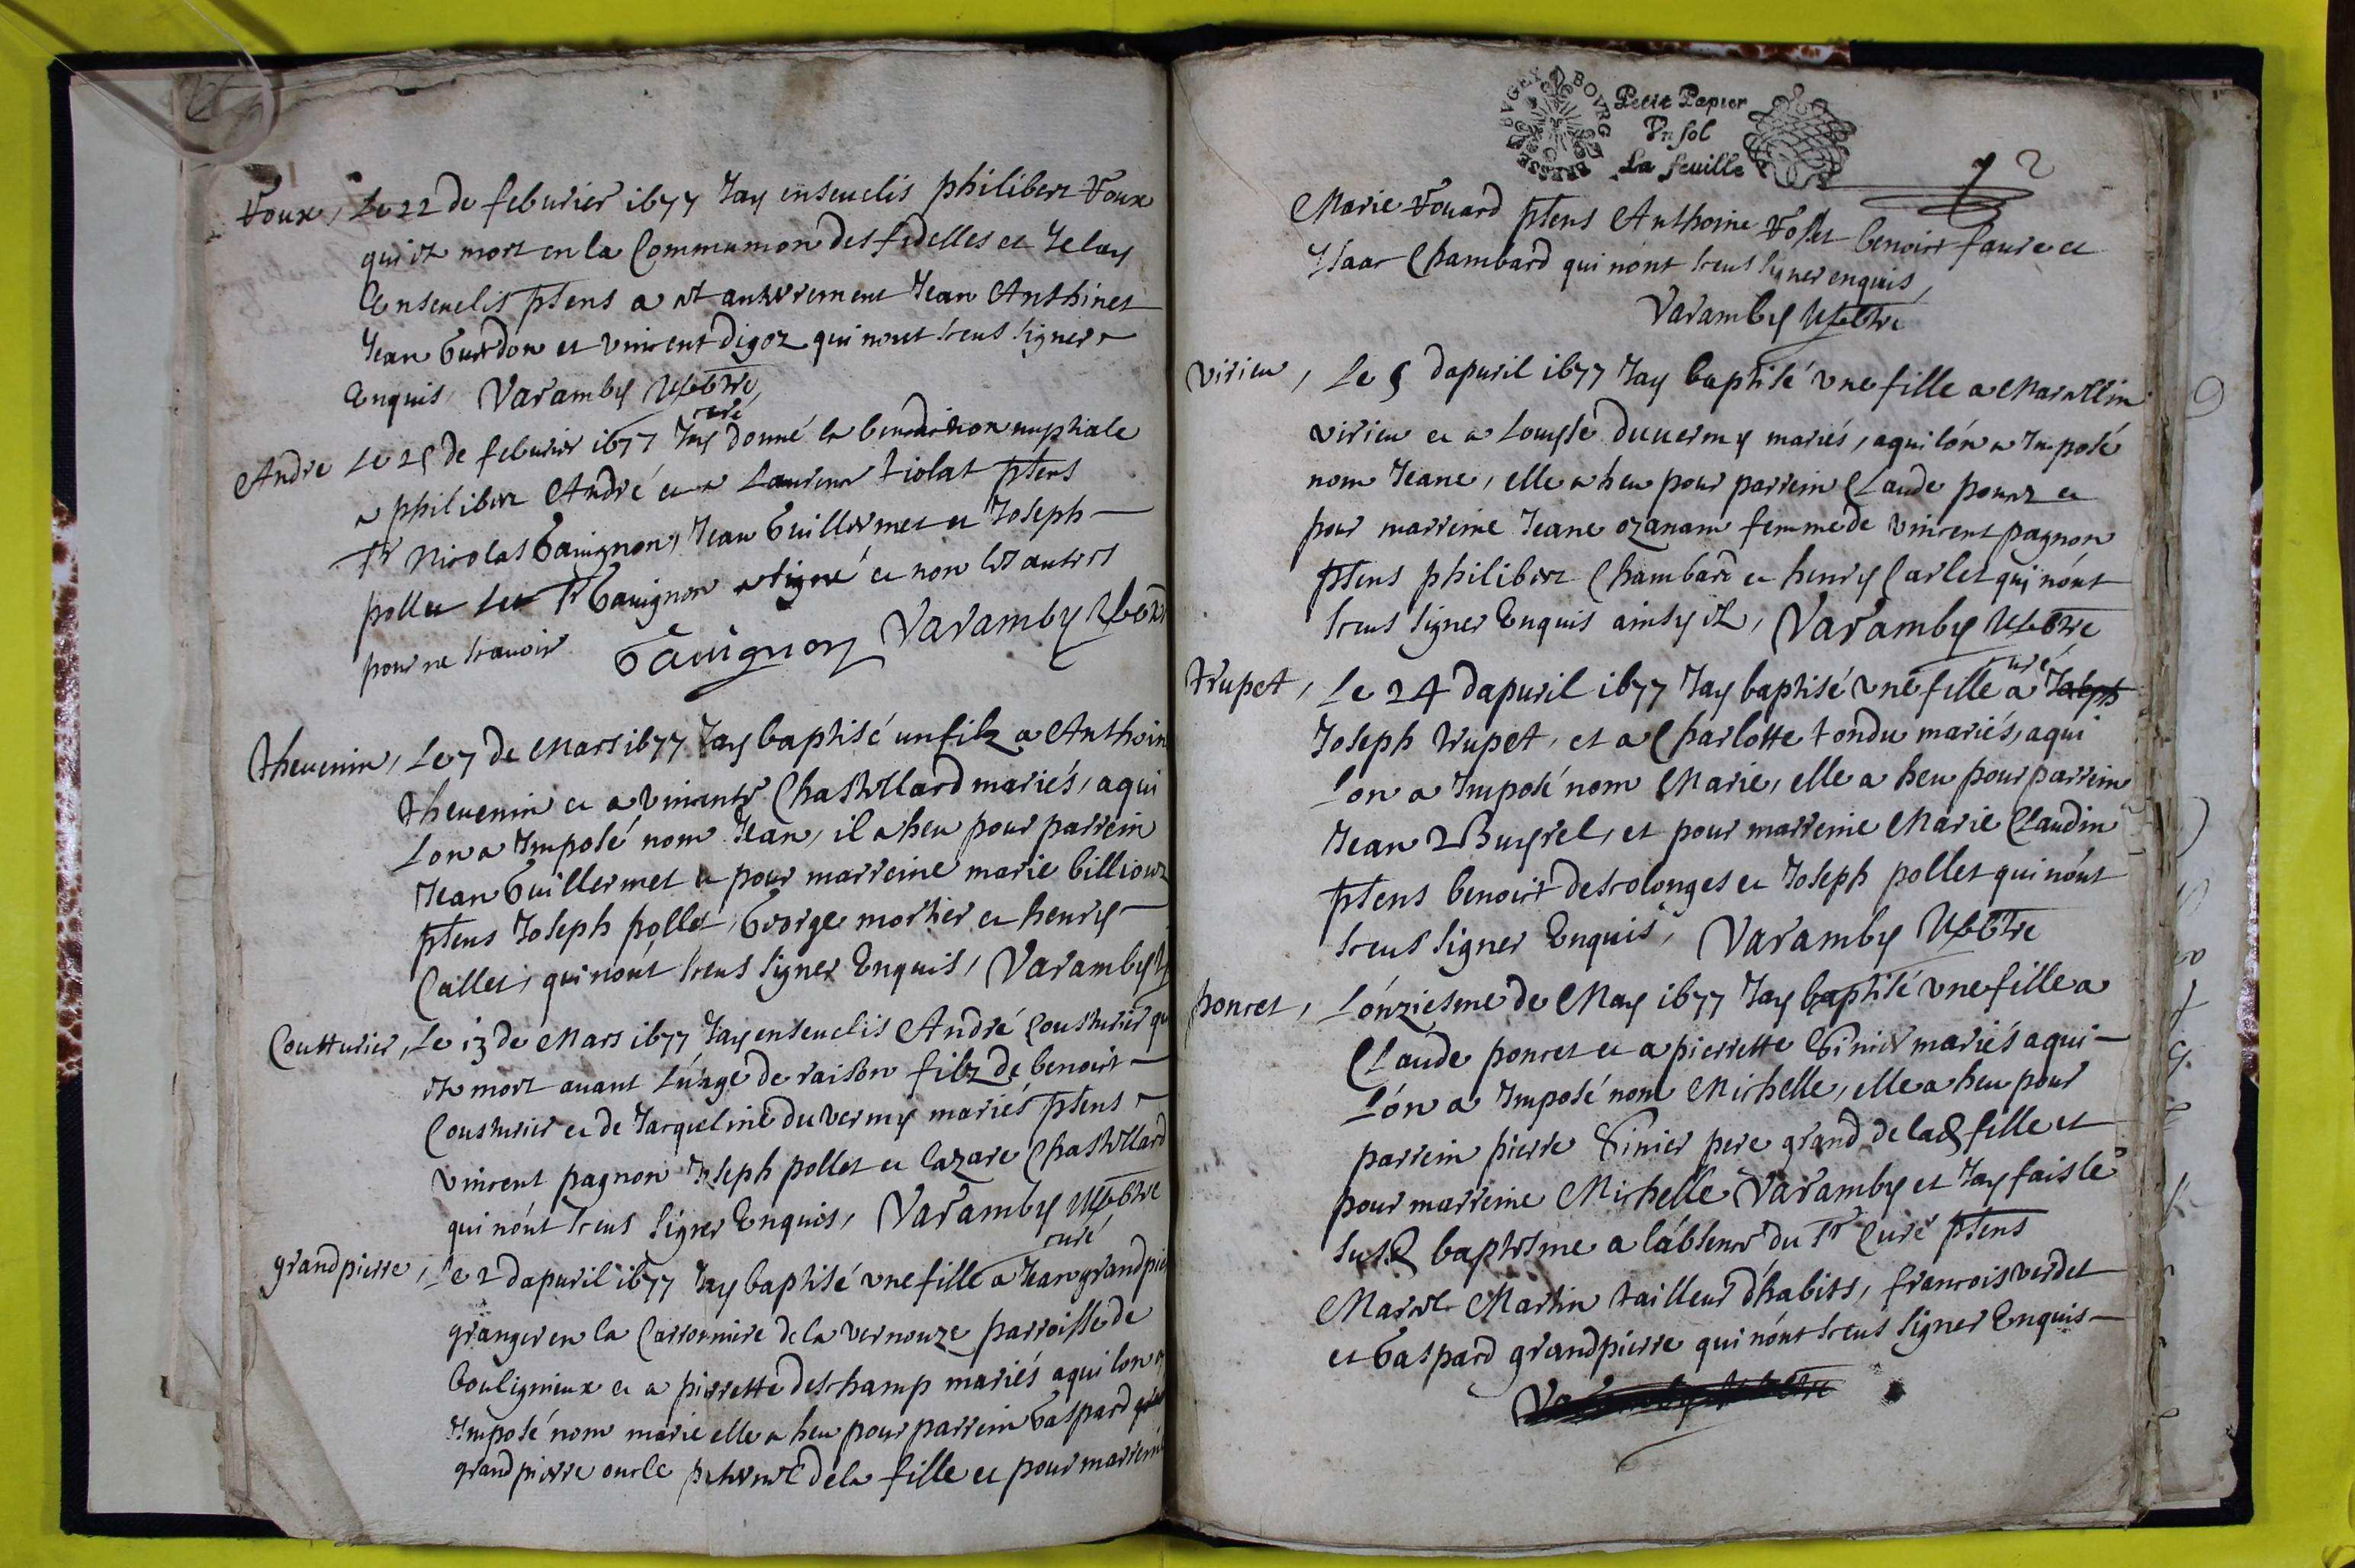 Voux, Le 22 de feburier 1677 Jay enseuelis philibert Voux
qui est mort en la Communion des fidelles et Je lay
Enseuelis ptens a cet anterrement Jean Anthinet
Jean Gurdon et vincent Digoz qui nont sceus signer
Enquis, Varamby
curé
Andre Le 25 de feburier 1677 Jay donné la benediction nuptiale
a philibert André et a Laurence tiolat ptens
Sr Nicolas Gauignon, Jean Guillermet et Joseph
pollet led Sr Gauignon a signé et non les autres
pour ne scauoir Gauignon Varamby
theuenin, Le 7 de Mars 1677 Jay baptisé un filz a Anthoin
theuenin et a vincente Chastellard mariés, a qui
Lon a Imposé nom Jean, il a heu pour parrein
Jean Guillermet et pour marreine marie billioud
ptens Joseph pollet, George mortier et henry
Callet, qui nont sceus signer Enquis, Varamby
Coutturier, Le 13 de Mars 1677 Jay enseuelis André Cousturier qui
est mort auant L'uage de raison filz de benoist
Cousturier et de Jacqueline du vermy mariés ptens
vincent pagnon Joseph pollet et lazare Chastellard
qui nont sceus signer Enquis, Varamby
curé
grandpierre, Le 2 dapuril 1677 Jay baptisé vne fille a Jean grandpie
granger en la Carronniere de la vernouze parroisse de
boulignieux et a pierrette deschamp mariés a qui lon a
Imposé nom marie elle a heu pour parrein Gaspard
grandpierre oncle paternel de la fille et pour marreine
BRESSE BVGEY BOVRG
Petit Papier
Vn sol
La feuille
2
Marie Vouard ptens Anthoine Vosset benoist faure et
Isaac Chambard qui nont sceus signer enquis,
Varamby
virieu, Le 5 dapuril 1677 Jay baptisé vne fille a Marcellin
virieu et a Louyse duuermy mariés, a qui lon a Imposé
nom Jeane, elle a heu pour parrein Claude poncet et
pour marreine Jeane ozanam femme de vincent pagnon
ptens philibert Chambard et henry Carlet qui nont
sceus signer Enquis ainsy est, Varamby
curé
trupet, Le 24 dapuril 1677 Jay baptisé vne fille a Joseph
Joseph trupet, et a Charlotte tondu mariés, a qui
Lon a Imposé nom Marie, elle a heu pour parrein
Jean Buyrel, et pour marreine Marie Claudin
ptens benoist descolonges et Joseph pollet qui nont
sceus signer Enquis, Varamby
poncet, Lonziesme de May 1677 Jay baptisé vne fille a
Claude poncet et a pierrette Vinier mariés a qui
Lon a Imposé nom Michelle, elle a heu pour
parrein pierre Vinier pere grand de lad fille et
pour marreine Michelle Varamby et Jay fais le
susd baptesme a labsence du Sr Curé ptens
Marcel Martin tailleur d'habits, francois verdet
et Gaspard grandpierre qui nont sceus signer Enquis